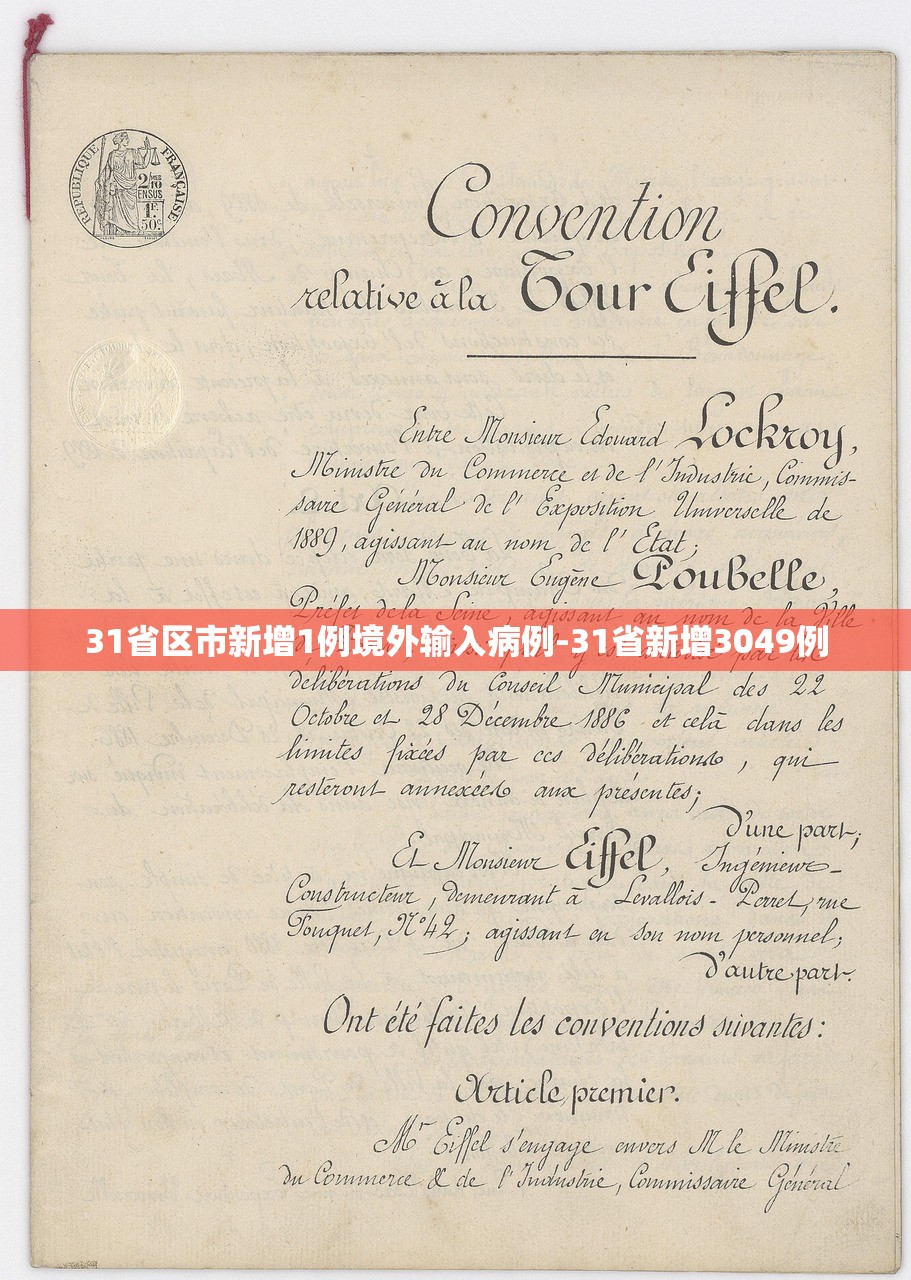 RÉPUBLIQUE FRANÇAISE
2/10
EN SUS
1F.
50c
Convention
relative à la Tour Eiffel.
Entre Monsieur Edouard Lockroy,
Ministre du Commerce et de l'Industrie, Commis-
saire Général de l'Exposition Universelle de
1889, agissant au nom de l'Etat;
Monsieur Eugène Poubelle,
Préfet de la Seine, agissant au nom de la Ville
31省区市新增1例境外输入病例-31省新增3049例
délibérations du Conseil Municipal des 22
Octobre et 28 Décembre 1886 et celà dans les
limites fixées par ces délibérations, qui
resteront annexées aux présentes;
D'une part;
Et Monsieur Eiffel, Ingénieur-
Constructeur, demeurant à Levallois-Perret, rue
Fouquet, N° 42; agissant en son nom personnel;
D'autre part.
Ont été faites les conventions suivantes:
Article premier.
Mr Eiffel s'engage envers M le Ministre
du Commerce & de l'Industrie, Commissaire Général